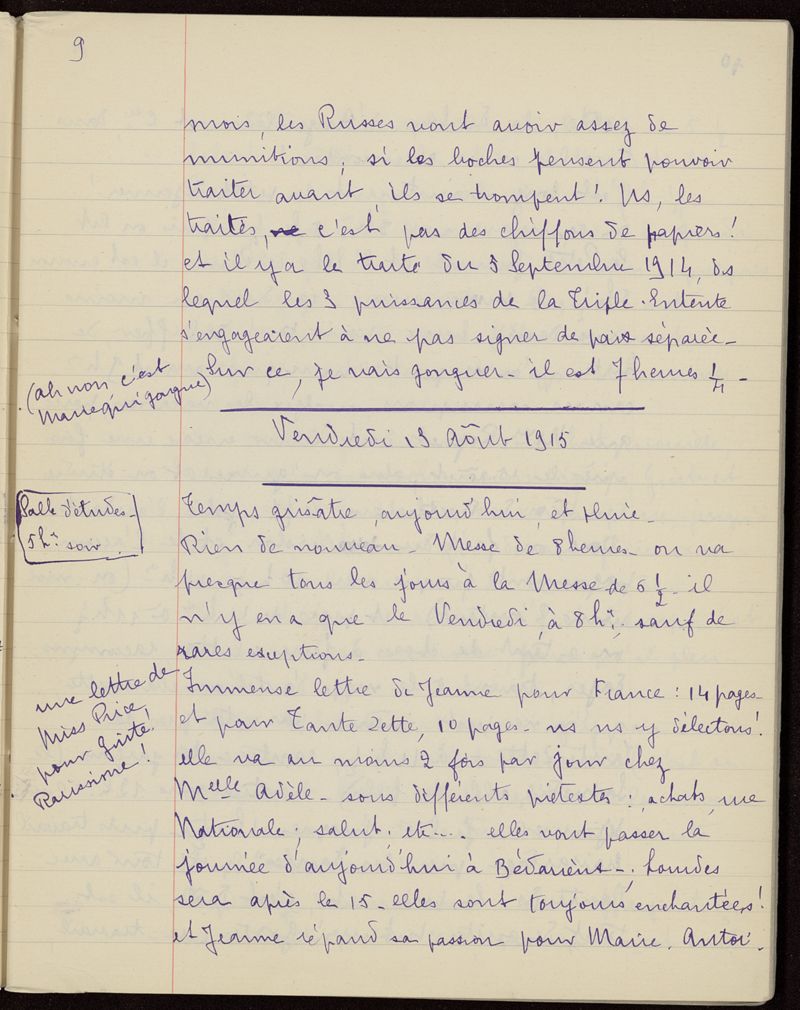 9
mois, les Russes vont avoir assez de
munitions ; si les boches pensent pouvoir
traiter avant, ils se trompent ! Ns, les
traités, ne c'est pas des chiffons de papiers !
et il y a le traité du 5 Septembre 1914, ds
lequel les 3 puissances de la Triple-Entente
s'engageaient à ne pas signer de paix séparée -
Sur ce, je vais gonguer - il est 7 heures 1/4 -
(ah non c'est
Marie qui gongue)
Vendredi 13 Août 1915
Salle d'études -
5 hrs soir.
Temps grisâtre, aujourd'hui, et pluie -
Rien de nouveau - Messe de 8 heures - on va
presque tous les jours à la Messe de 6 1/2 - il
n'y en a que le Vendredi, à 8 hrs, sauf de
rares exceptions -
une lettre de
Miss Price,
pour Zite !
Rarissime !
Immense lettre de Jeanne pour France : 14 pages -
et pour Tante Zette, 10 pages - ns ns y délectons !
elle va au moins 2 fois par jour chez
Melle Adèle - sous différents prétextes : achats, rue
Nationale ; salut ; etc.... elles vont passer la
journée d'aujourd'hui à Bédarieux - ; Lourdes
sera après le 15 - elles sont toujours enchantées !
et Jeanne répand sa passion pour Marie-Antoi-